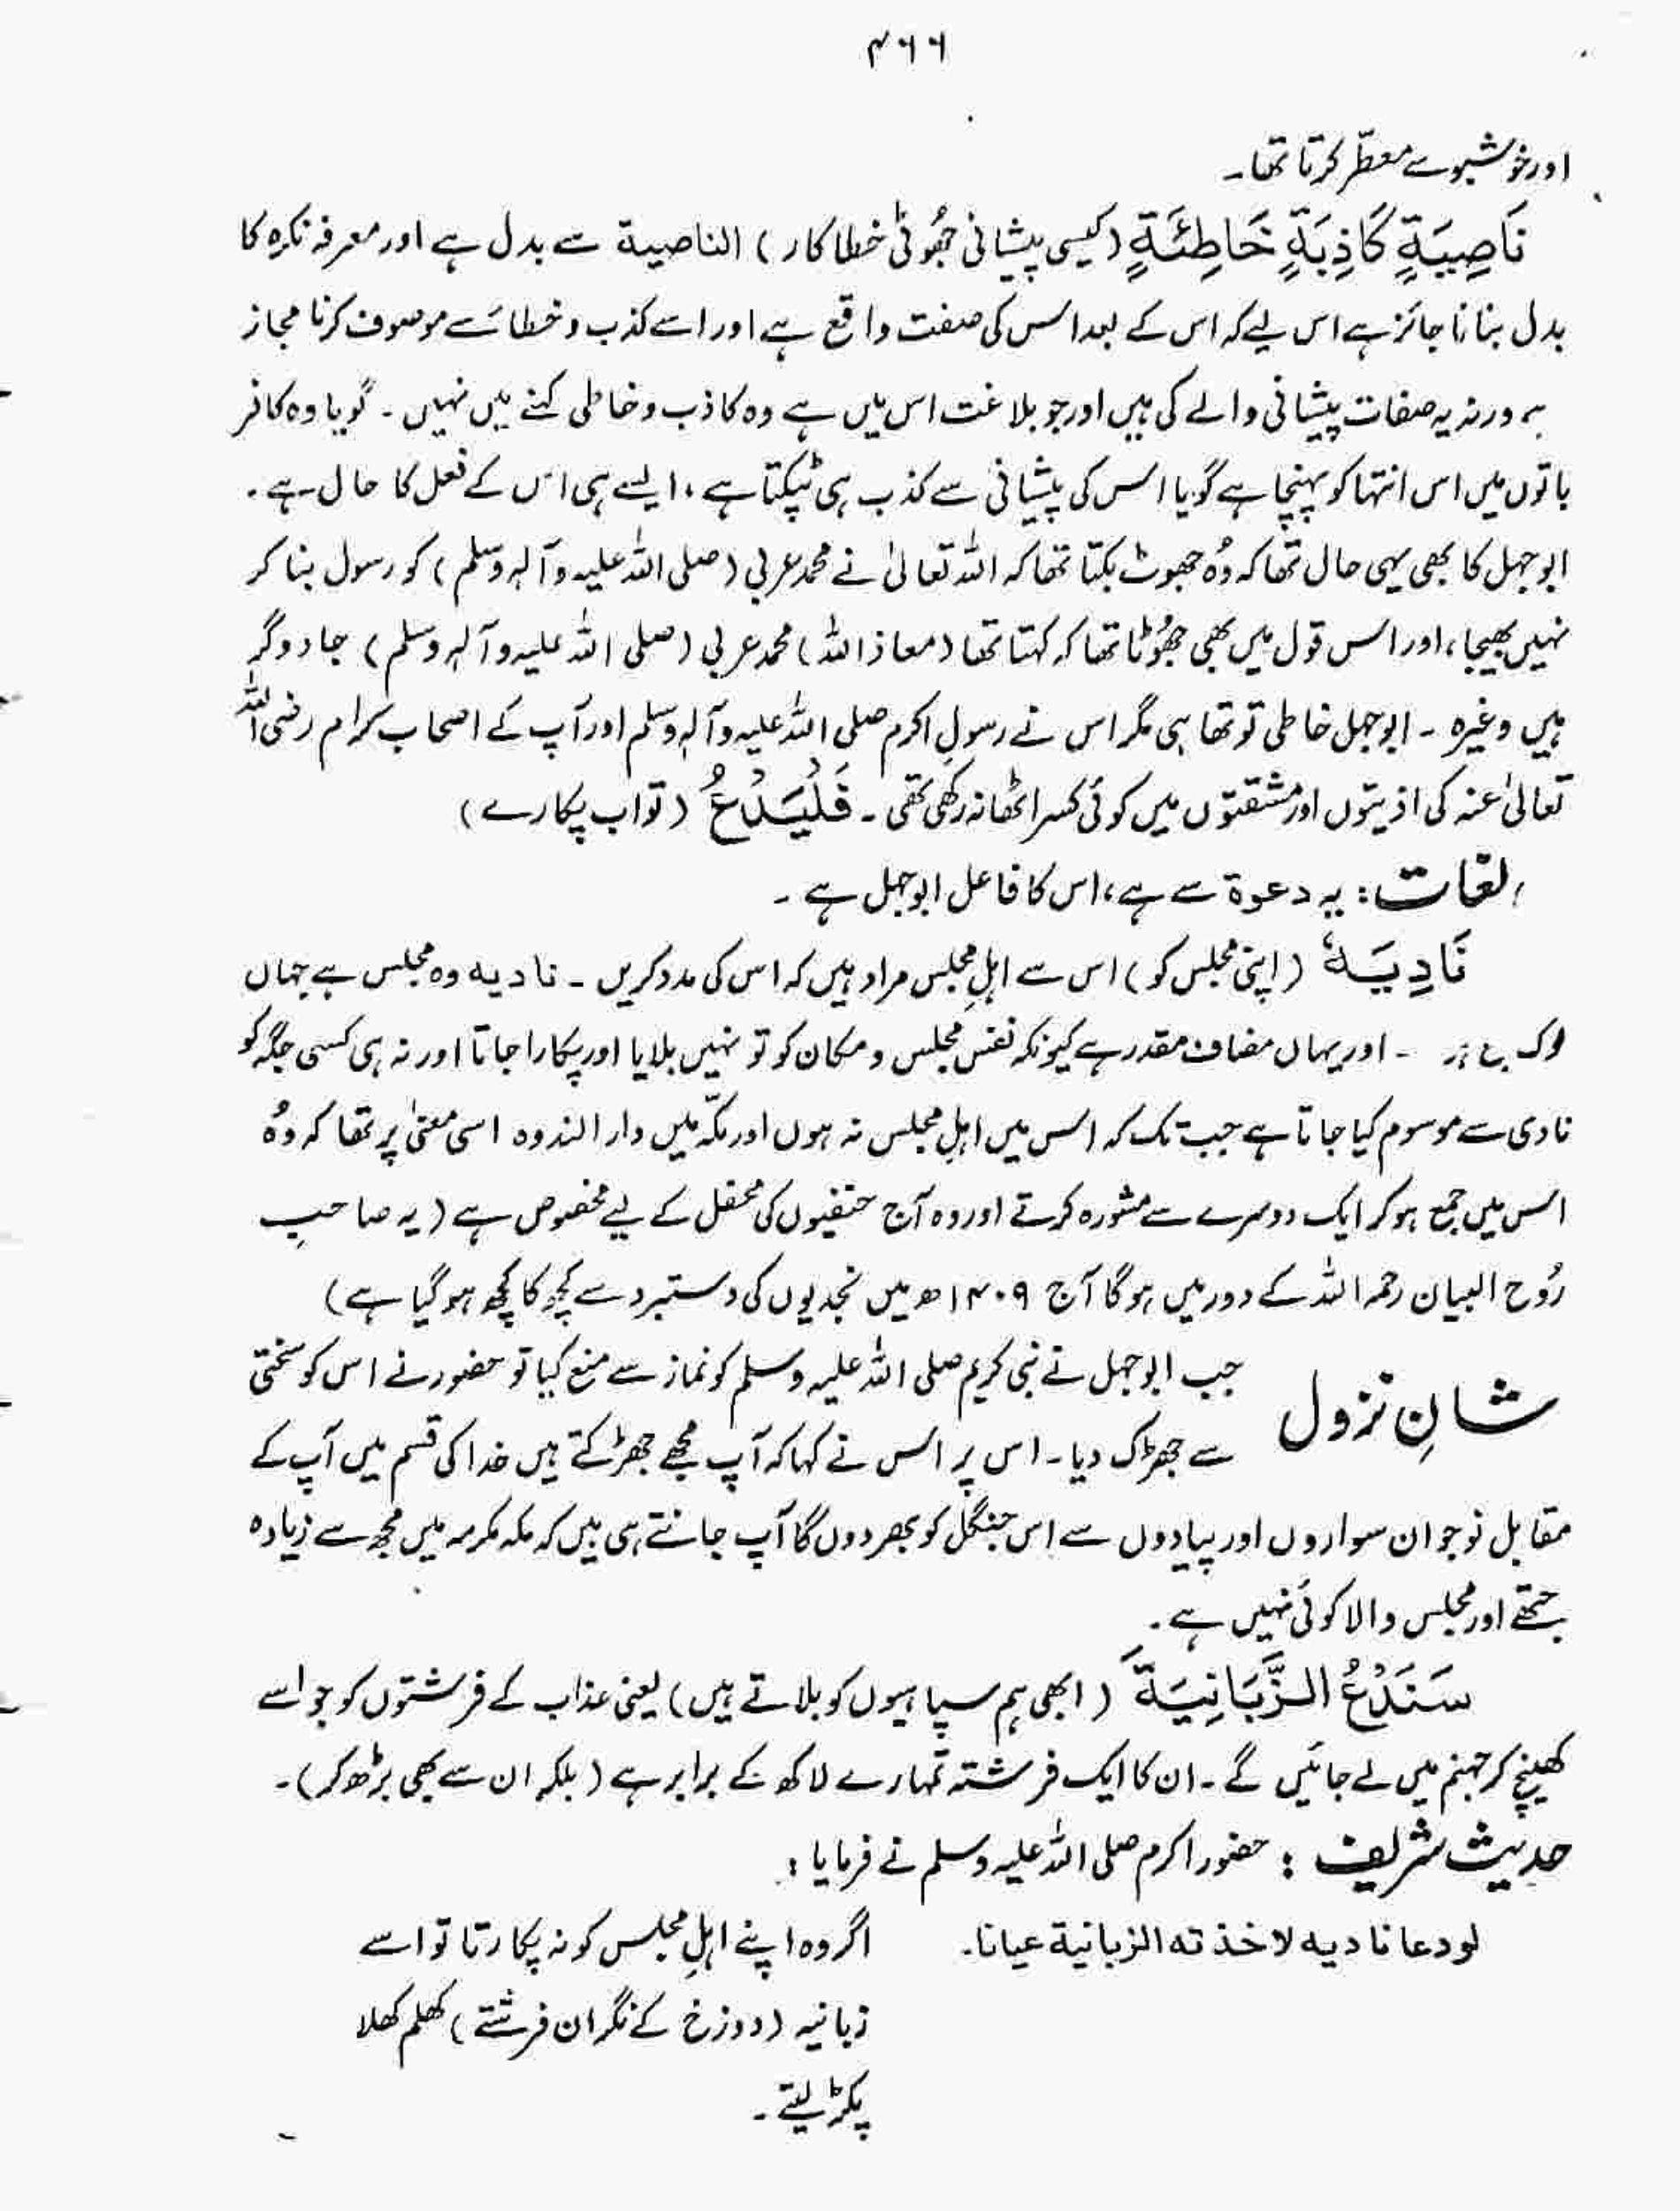 ۴۶۶
اور خوشبو سے معطّر کرتا تھا۔
نَاصِيَةٍ كَاذِبَةٍ خَاطِئَةٍ (کیسی پیشانی جھُوٹی خطاکار) الناصیة سے بدل ہے اور معرفہ نکرہ کا
بدل بنانا جائز ہے اس لیے کہ اس کے بعد اس کی صفت واقع ہے اور اسے کذب و خطا سے موصوف کرنا مجاز
ہے ورنہ یہ صفات پیشانی والے کی ہیں اور جو بلاغت اس میں ہے وہ کاذب و خاطی کہنے میں نہیں۔ گویا وہ کافر
باتوں میں اس انتہا کو پہنچا ہے گویا اس کی پیشانی سے کذب ہی ٹپکتا ہے، ایسے ہی اس کے فعل کا حال ہے۔
ابوجہل کا بھی یہی حال تھا کہ وُہ جھوٹ بکتا تھا کہ اللہ تعالیٰ نے محمد عربی (صلی اللہ علیہ وآلہ وسلم) کو رسول بنا کر
نہیں بھیجا، اور اس قول میں بھی جھُوٹا تھا کہ کہتا تھا (معاذ اللہ) محمد عربی (صلی اللہ علیہ وآلہ وسلم) جادوگر
ہیں وغیرہ۔ ابوجہل خاطی تو تھا ہی مگر اس نے رسولِ اکرم صلی اللہ علیہ وآلہ وسلم اور آپ کے اصحاب کرام رضی اللہ
تعالیٰ عنہ کی اذیتوں اور مشقتوں میں کوئی کسر اٹھا نہ رکھی تھی۔ فَلْيَدْعُ (تو اب پکارے)
لغات: یہ دعوة سے ہے، اس کا فاعل ابوجہل ہے۔
نَادِيَهٗ (اپنی مجلس کو) اس سے اہلِ مجلس مراد ہیں کہ اس کی مدد کریں۔ نادیه وہ مجلس ہے جہاں
۔ اور یہاں مضاف مقدر ہے کیونکہ نفس مجلس و مکان کو تو نہیں بلایا اور پکارا جاتا اور نہ ہی کسی جگہ کو
نادی سے موسوم کیا جاتا ہے جب تک کہ اس میں اہلِ مجلس نہ ہوں اور مکّہ میں دار الندوہ اسی معنیٰ پر تھا کہ وُہ
اس میں جمع ہو کر ایک دوسرے سے مشورہ کرتے اور وہ آج حنفیوں کی محفل کے لیے مخصوص ہے (یہ صاحبِ
رُوح البیان رحمہ اللہ کے دور میں ہوگا آج ۱۴۰۹ھ میں نجدیوں کی دستبرد سے کچھ کا کچھ ہوگیا ہے)
شانِ نزول جب ابوجہل نے نبی کریم صلی اللہ علیہ وسلم کو نماز سے منع کیا تو حضور نے اس کو سختی
سے جھڑک دیا۔ اس پر اس نے کہا کہ آپ مجھے جھڑکتے ہیں خدا کی قسم میں آپ کے
مقابل نوجوان سواروں اور پیادوں سے اس جنگل کو بھر دوں گا آپ جانتے ہی ہیں کہ مکہ مکرمہ میں مجھ سے زیادہ
جتھے اور مجلس والا کوئی نہیں ہے۔
سَنَدْعُ الزَّبَانِيَةَ (ابھی ہم سپاہیوں کو بلاتے ہیں) یعنی عذاب کے فرشتوں کو جو اسے
کھینچ کر جہنم میں لے جائیں گے۔ ان کا ایک فرشتہ تمہارے لاکھ کے برابر ہے (بلکہ ان سے بھی بڑھ کر)۔
حدیث شریف: حضور اکرم صلی اللہ علیہ وسلم نے فرمایا:
لودعا نادیه لاخذته الزبانیة عیانا۔ اگر وہ اپنے اہلِ مجلس کو نہ پکارتا تو اسے
زبانیہ (دوزخ کے نگران فرشتے) کھلم کھلا
پکڑ لیتے۔